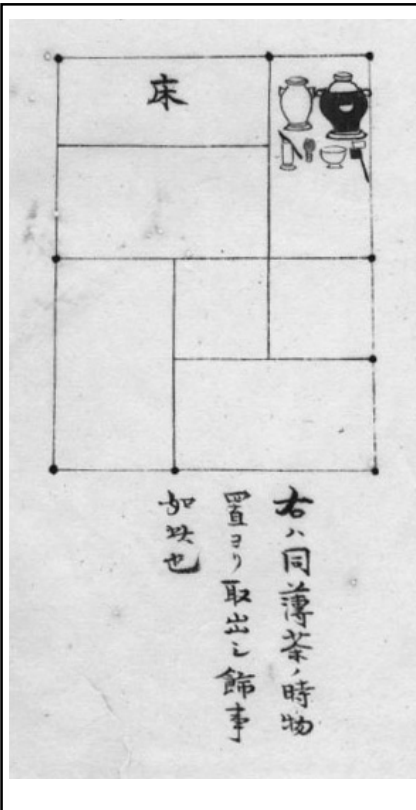 床
右ハ同薄茶ノ時物
置ヨリ取出シ飾事
如此也